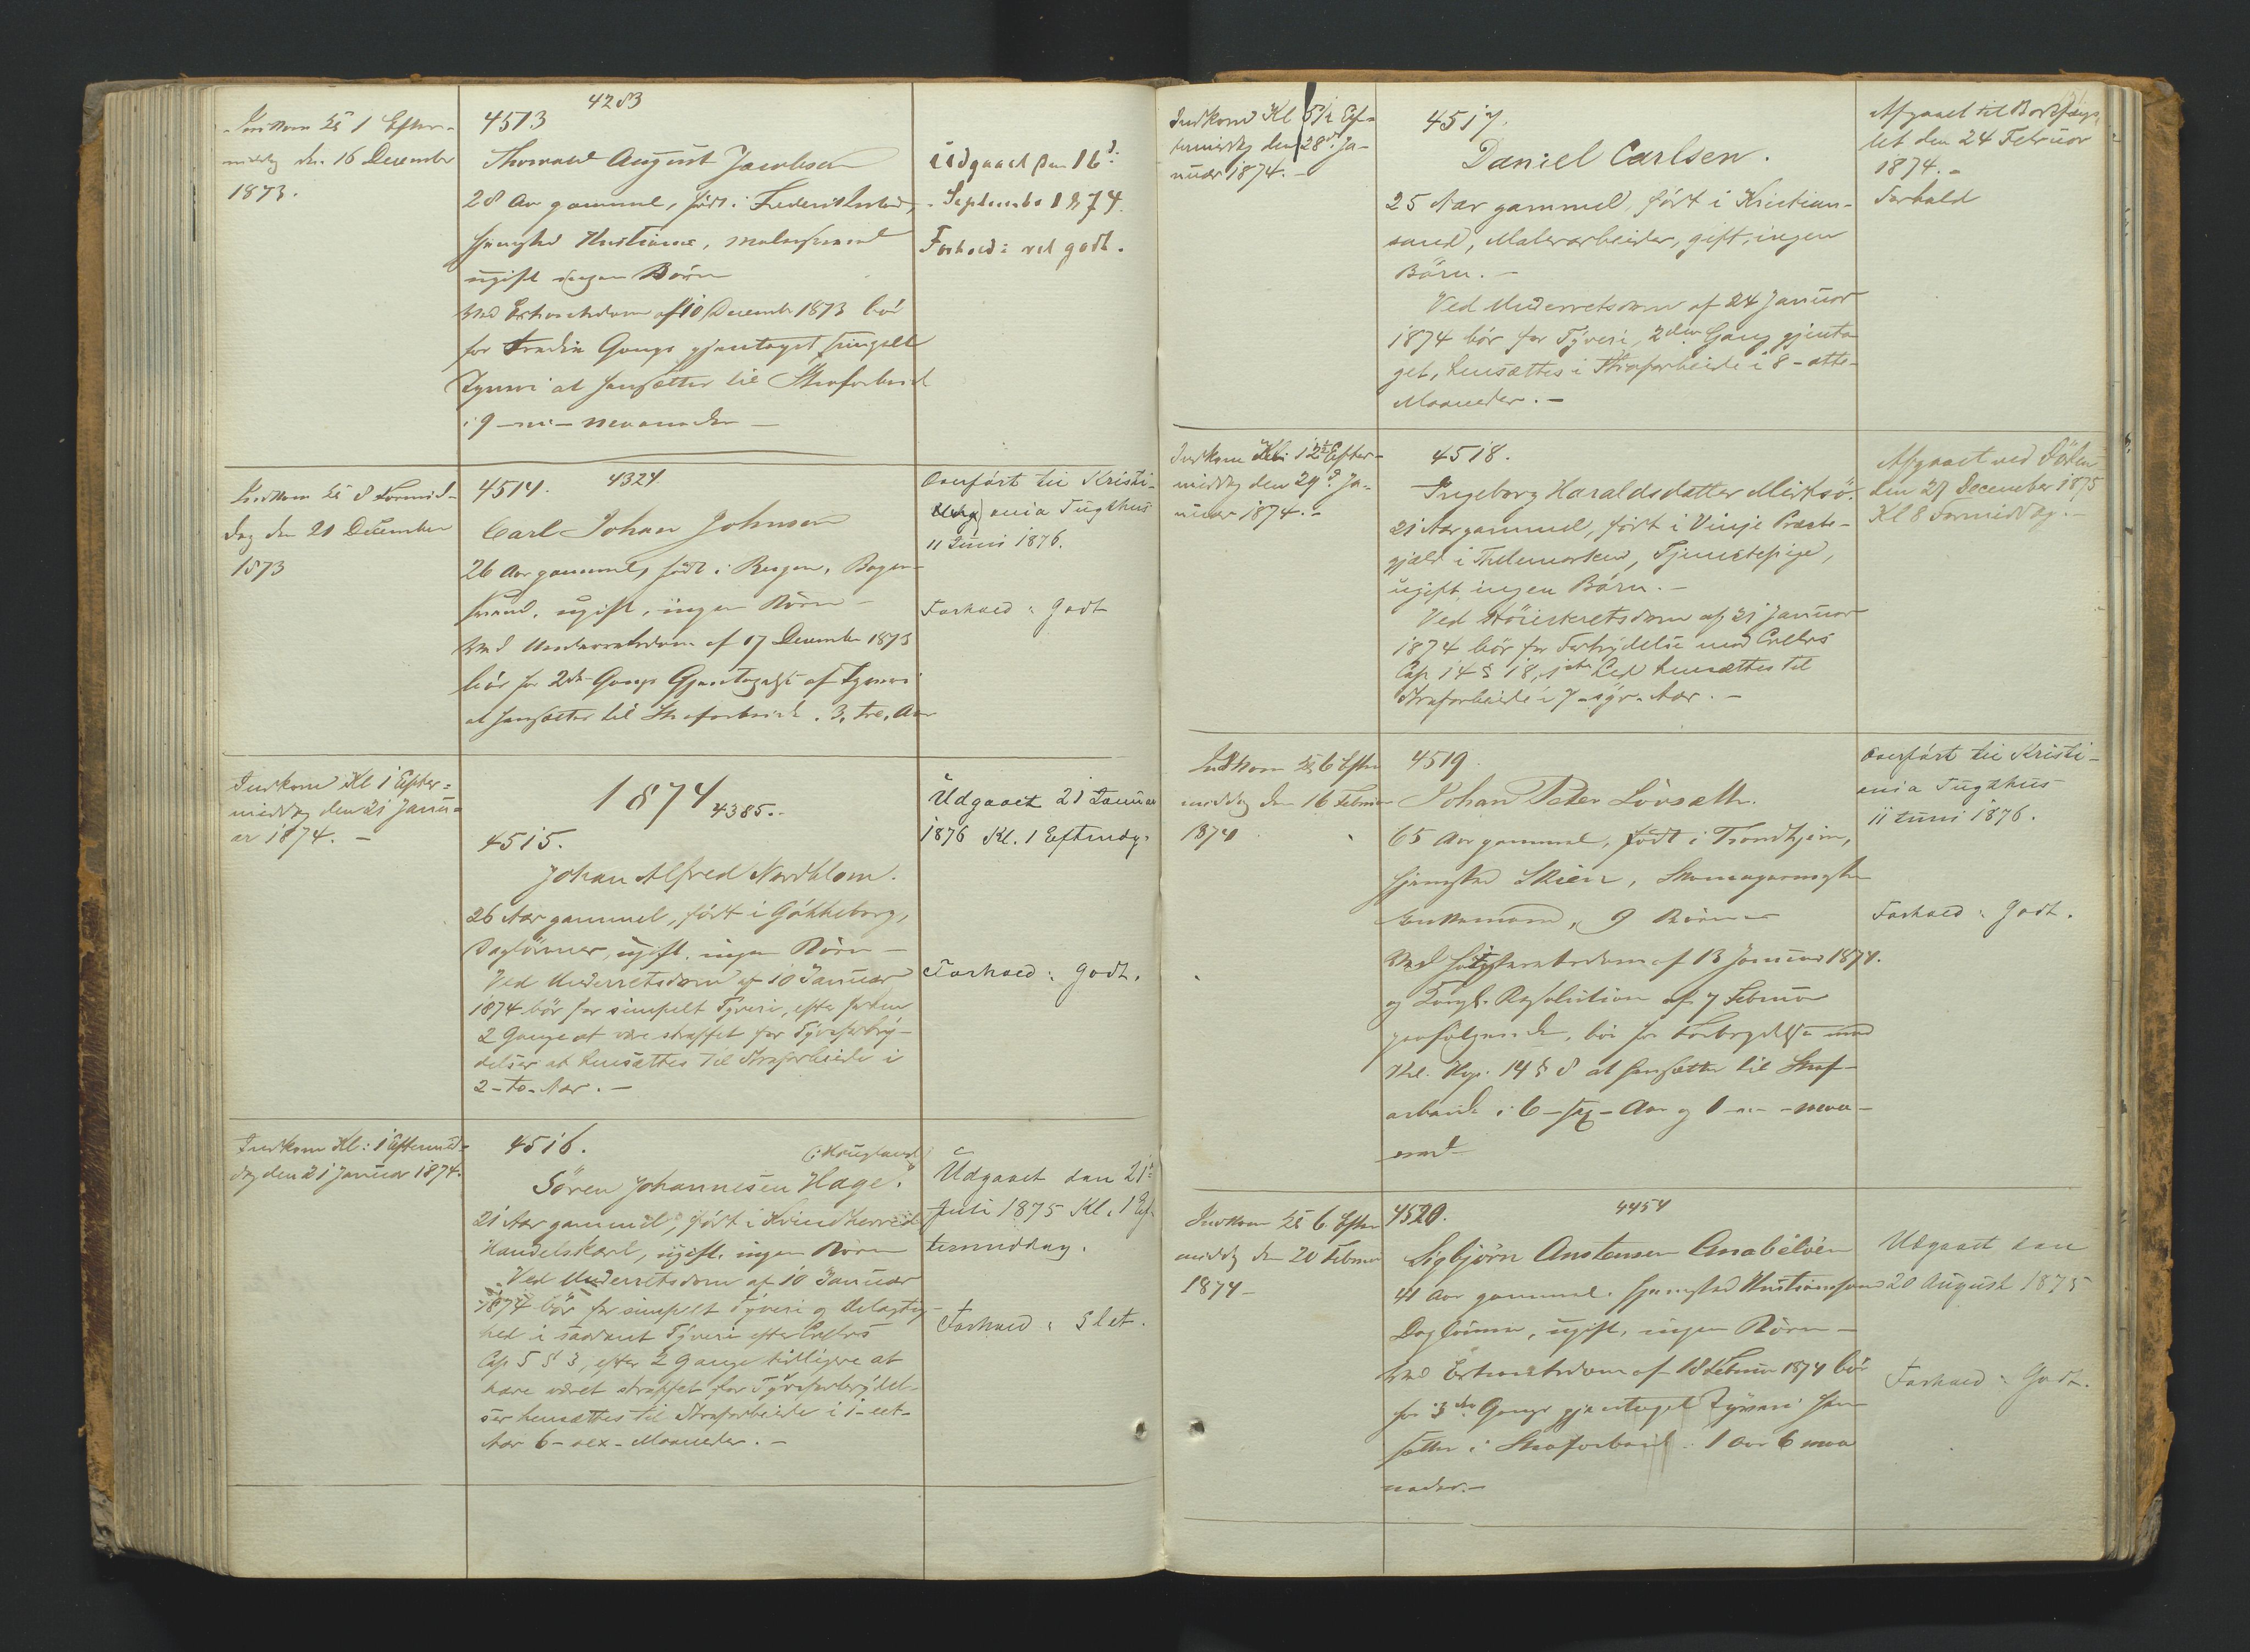 Indkom Kl 1 Efter-
middag den 16 December
1873.
4283
4513
Thorvald August Jacobsen
28 Aar gammel, født i Frederikstad,
Hjemsted Kristiania, Malersvend
ugift ingen Börn
Ved Extraretsdom af 10 December 1873 bör
for tredie Gangs gjentaget simpelt
Tyveri at hensættes til Strafarbeid
i 9 - ni - Maaneder -
Udgaaet den 16d:
September 1874.
Forhold: vel godt.
Indkom Kl 8 Formid-
dag den 20 December
1873
4514. 4324
Carl Johan Johnsen
26 Aar gammel, födt i Bergen, Bager-
svend, ugift, ingen Börn -
Ved Underretsdom af 17 December 1873
bör for 2den Gangs Gjentagelse af Tyveri
at hensættes til Strafarbeide i 3, tre, Aar
Overfört til Kristi-
ania Tugthus
11 Juni 1876.
Forhold: Godt
Indkom Kl 1 Efter-
middag den 21 Janu-
ar 1874. -
1874
4385.
4515.
Johan Alfred Nordblom.
26 Aar gammel, födt i Göthheborg,
Daglönner, ugift. ingen Börn -
Ved Underretsdom af 10 Januar
1874 bör for simpelt Tyveri, efter forhen
2 Gange at være straffet for Tyvsforbry-
delser at hensættes til Strafarbeide i
2 - to - Aar. -
Udgaaet 21 Januar
1876 Kl. 1 Eftmdg.
Forhold: Godt.
Indkom Kl: 1 Eftermid-
dag den 21 Januar 1874.
4516.
(: Haugland
Sören Johannesen Hage.
21 Aar gammel, födt i Kvindherred
Handelskarl, ugift. ingen Börn
Ved Underretsdom af 10 Januar
1874 bör for simpelt Tyveri og Delagtig-
hed i saadant Tyveri efter Crlovs
Cap 5 § 3, efter 2 Gange tidligere at
have været straffet for Tyvsforbrydel-
ser hensættes til Strafarbeide i 1 - eet -
Aar 6 - sex - Maaneder. -
Udgaaet den 21d:
Juli 1875 Kl. 1 Ef-
termiddag.
Forhold: Slet.
Indkom Kl 5½ Ef-
termiddag den 28d: Ja-
nuar 1874. -
4517.
Daniel Carlsen.
25 Aar gammel, födt i Kristian-
sand, Malerarbeider, gift, ingen
Börn. -
Ved Underretsdom af 24 Januar
1874 bör for Tyveri, 2den Gang gjenta-
get, hensættes i Strafarbeide i 8 - otte -
Maaneder. -
Afgaaet til Bodsfængs-
let den 24 Februar
1874. -
Forhold
Indkom Kl: 12½ Efter-
middag den 29d: Ja-
nuar 1874. -
4518.
Ingeborg Haraldsdatter Mirksö.
21 Aar gammel, födt i Vinje Præste-
gjæld i Thelemarken, Tjenestepige,
ugift ingen Börn. -
Ved Höiesteretsdom af 21 Januar
1874 bör for Forbrydelse mod Crlovs
Cap 14 § 18, 1ste Led hensættes til
Strafarbeide i 7 - syv - Aar. -
Afgaaet ved Döden
den 27 December 1875
Kl 8 Formiddag. -
Indkom Kl 6 Efter
middag den 16 Februar
1874
4519.
Johan Peter Lövseth.
65 Aar gammel, födt i Trondhjem,
Hjemsted Skien, Skomagermester
Enkemand, 9 Börn -
Ved Höiesteretsdom af 13 Januar 1874.
og Kongl. Resolution af 7 Februar
paafölgende, bör for Forbrydelse mod
Krl. Kap. 14 § 8 at hensættes til Straf-
arbeide i 6 - sex - Aar og 1 - en - Maa-
ned
Overfört til Kristi-
ania Tugthus
11 Juni 1876.
Forhold: Godt.
Indkom Kl 6 Efter
middag den 20 Februar
1874 -
4520. 4454
Sigbjörn Anstensen
41 Aar gammel. Hjemsted Kristianssand
Daglönner, ugift, ingen Börn -
Ved Extraretsdom af 18 Februar 1874 bör
for 3die Gangs gjentaget Tyveri hen-
sættes i Strafarbeide i 1 Aar 6 Maa
neder. -
Udgaaet den
20 August 1875
Forhold: Godt.